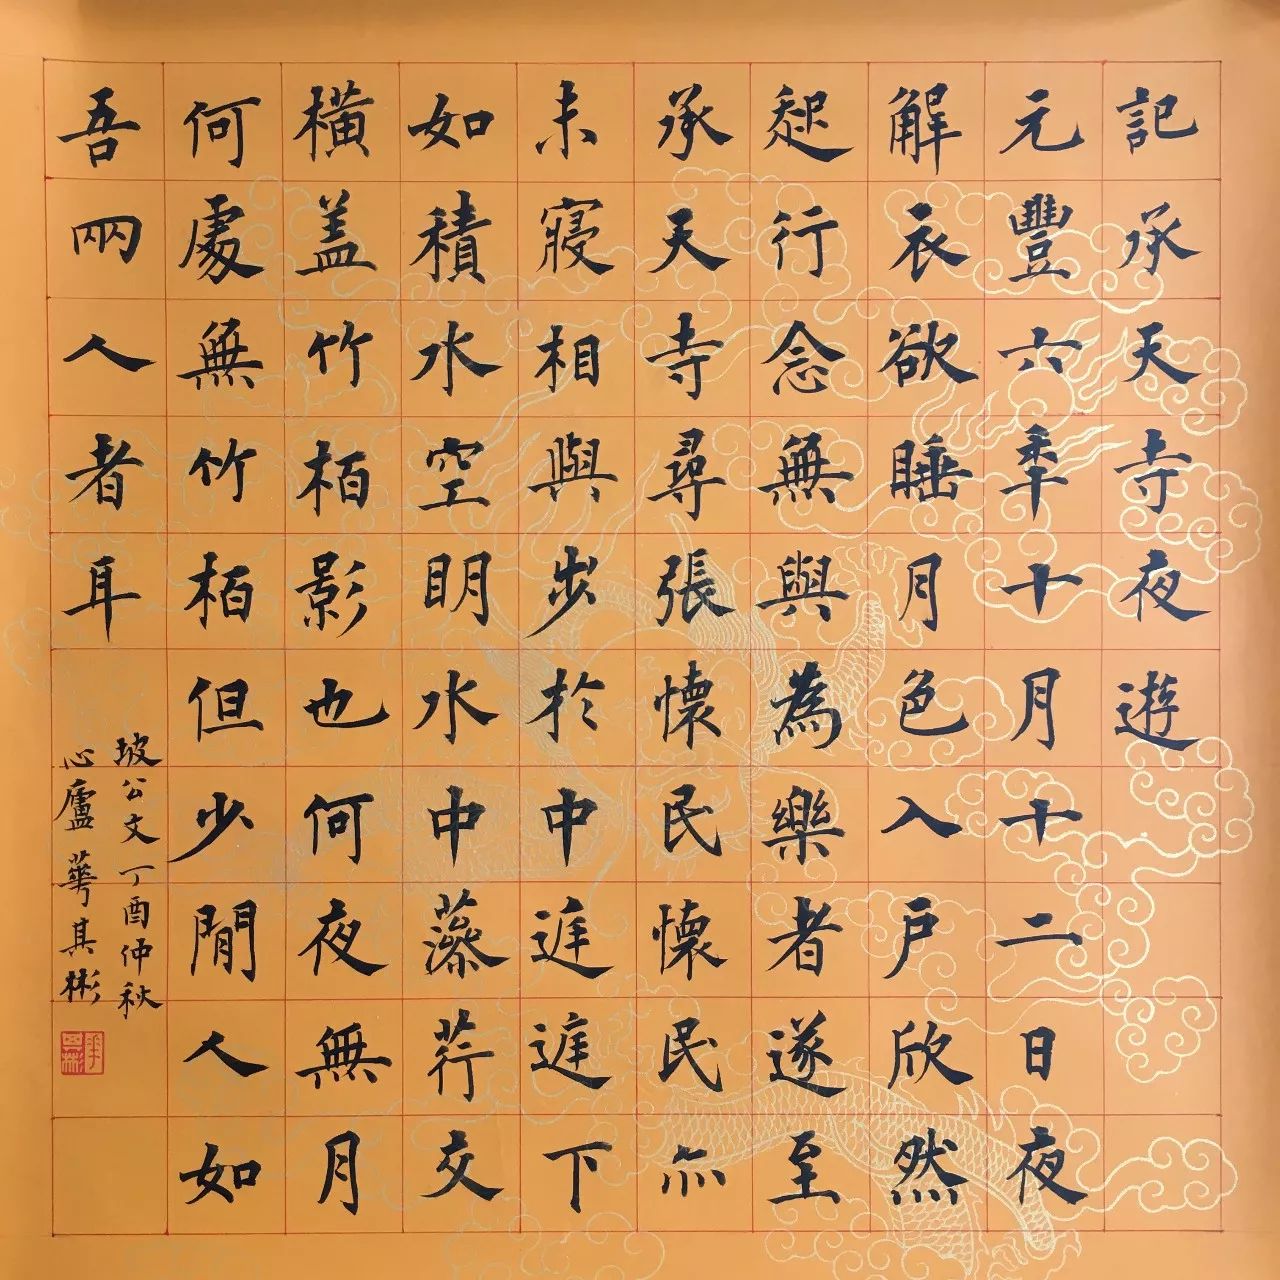 記承天寺夜遊
元豐六秊十月十二日夜
解衣欲睡月色入戶欣然
起行念無與為樂者遂至
承天寺尋張懷民懷民亦
未寢相與步於中庭庭下
如積水空明水中藻荇交
橫盖竹栢影也何夜無月
何處無竹栢但少閒人如
吾兩人者耳
坡公文丁酉仲秋
心廬華其彬